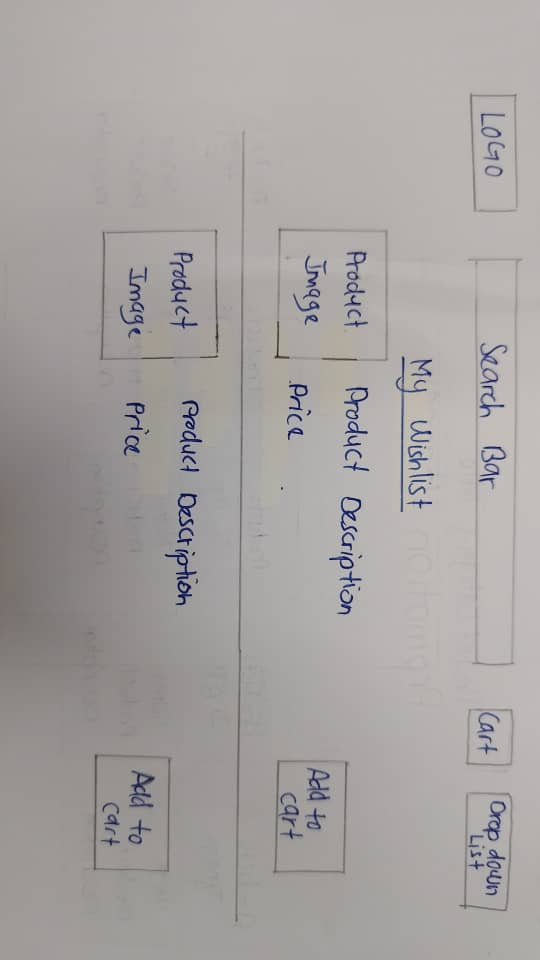 LOGO
Search Bar
Cart
Drop down
List
My Wishlist
Product
Image
Product Description
Price
Add to
cart
Product
Image
Product Description
Price
Add to
cart